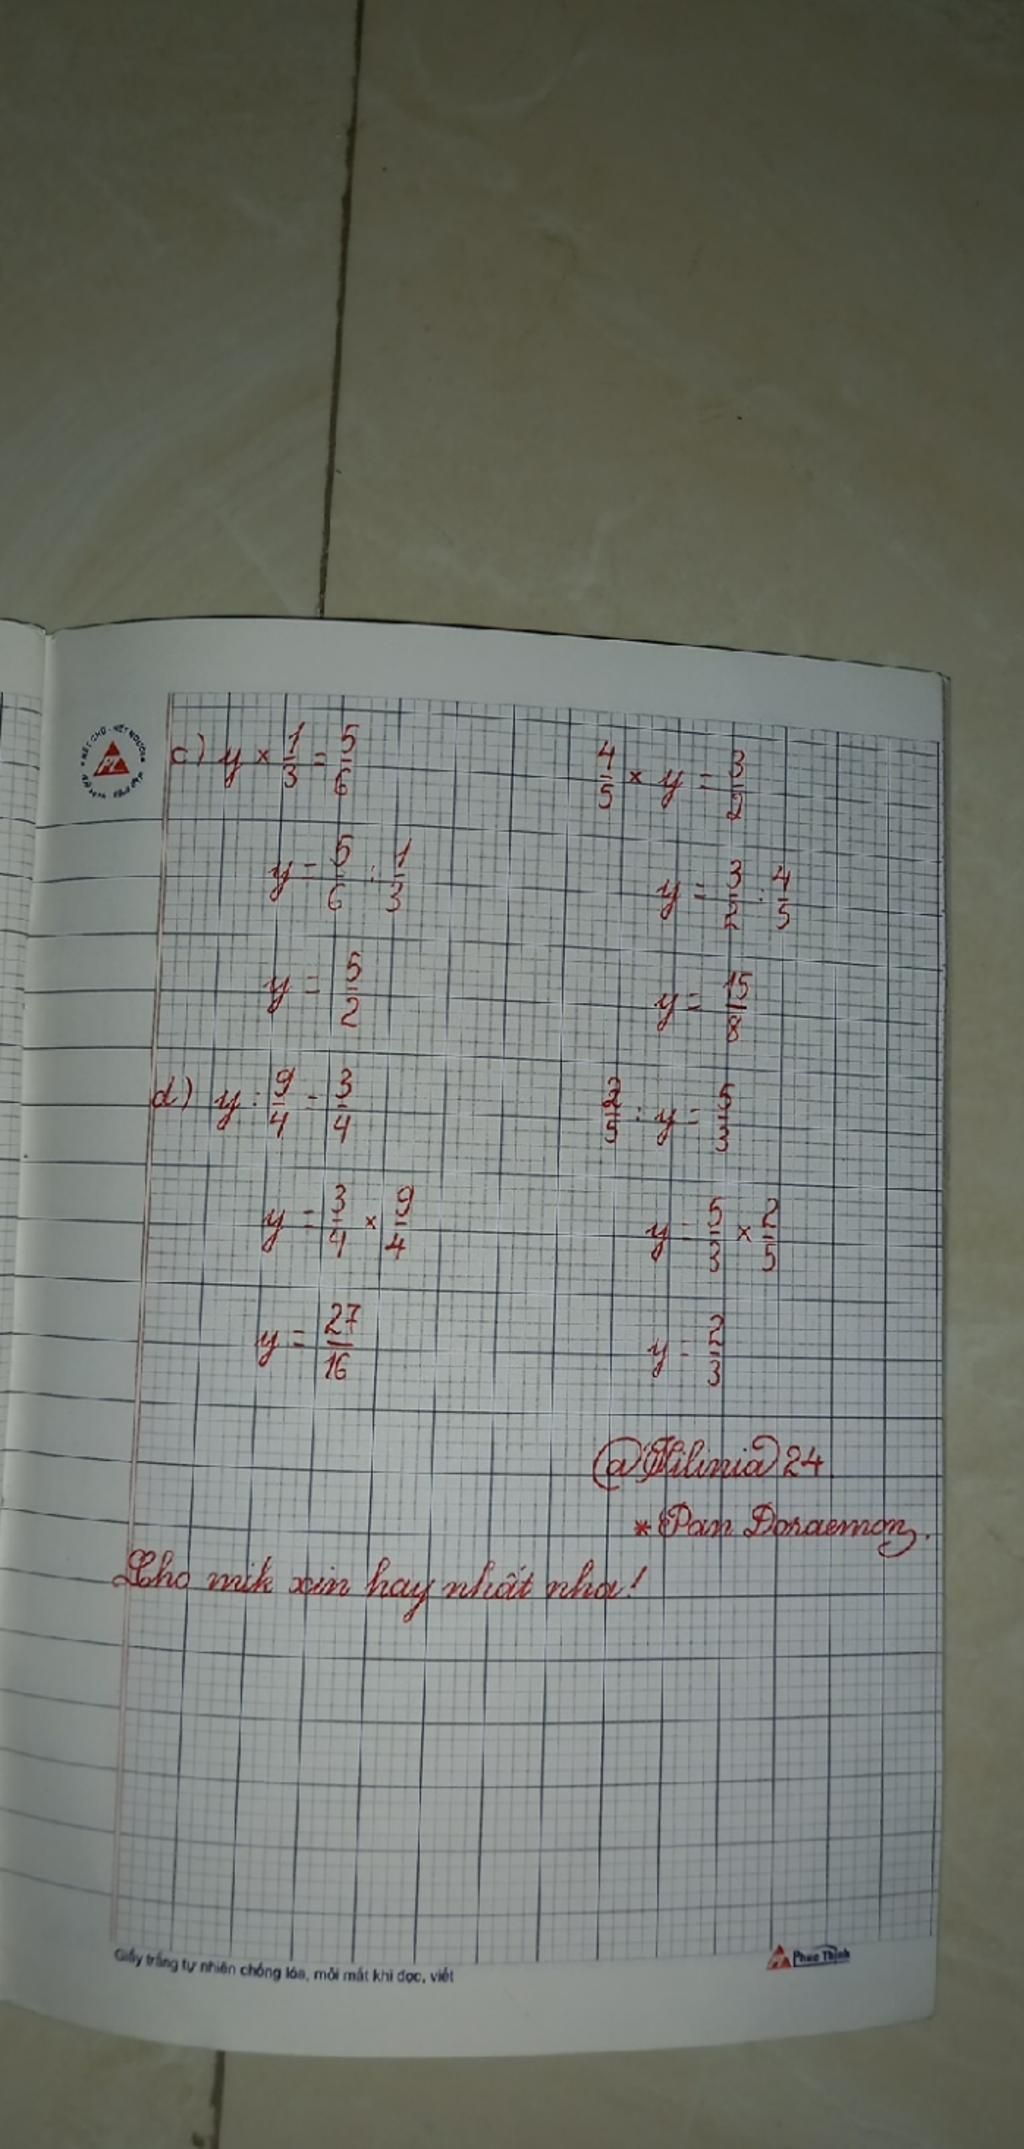 c) y × 1/3 = 5/6
y = 5/6 : 1/3
y = 5/2
4/5 × y = 3/2
y = 3/2 : 4/5
y = 15/8
d) y : 9/4 = 3/4
y = 3/4 × 9/4
y = 27/16
2/5 : y = 5/3
y = 5/3 × 2/5
y = 2/3
24
* Pan Doraemon.
Cho mik xin hay nhất nha!
Giấy trắng tự nhiên chống lóa, mỏi mắt khi đọc, viết
Phuc Thinh